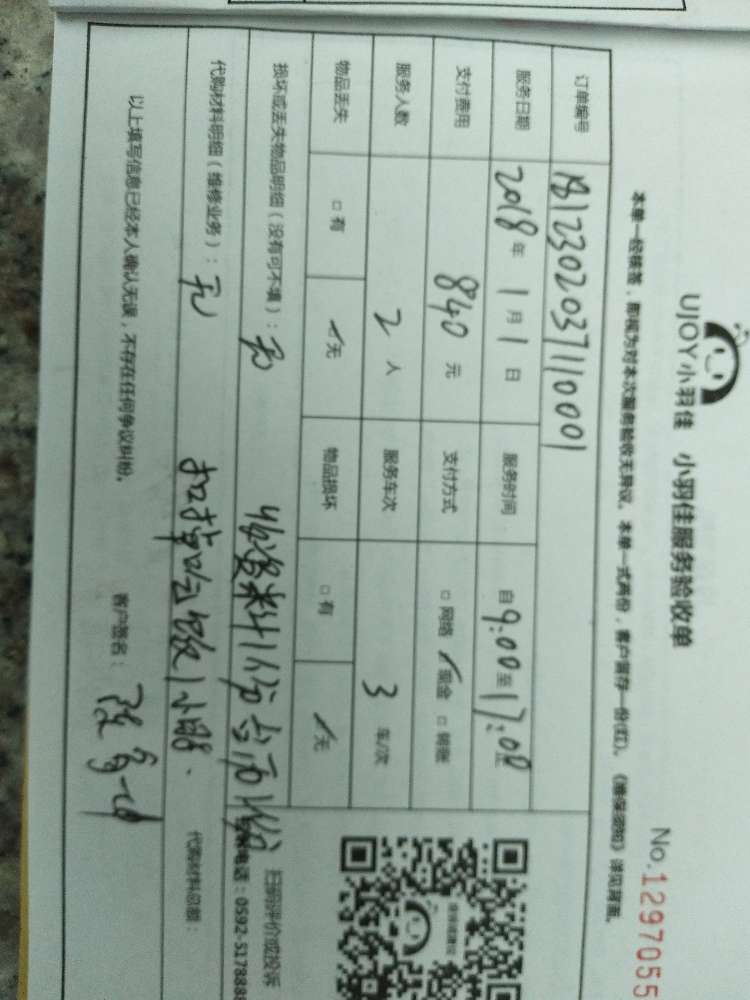 UJOY小羽佳 小羽佳服务验收单
No.1297055
本单一经核签，即视为对本次服务验收无异议。本单一式两份，客户留存一份(红)。《维保须知》详见背面。
订单编号
服务日期 2018年1月1日 服务时间 自9:00至17:00止
支付费用 840元 支付方式 □网络 ✓现金 □转账
服务人数 2人 服务车次 3车/次
物品丢失 □有 ✓无 物品损坏 □有 ✓无
损坏或丢失物品明细（没有可不填）：无
收资料1份合同1份
代购材料明细（维修业务）：无
代购材料总额：
以上填写信息已经本人确认无误，不存在任何争议纠纷。
客户签名：
扫码评价或投诉
电话：0592-517888